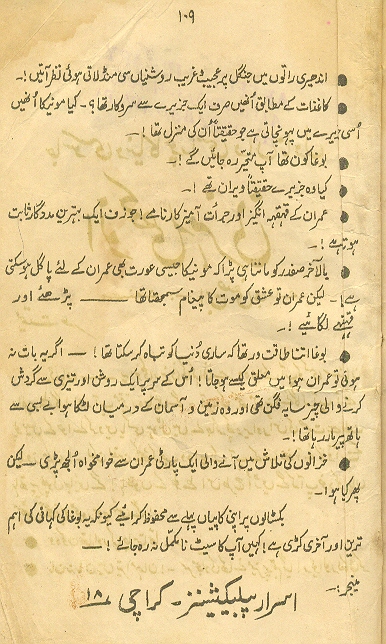 ۱۰۹
● اندھیری راتوں میں جنگل پر عجیب و غریب روشنیاں سی منڈلاتی ہوئی نظر آتیں!۔
● کاغذات کے مطابق اُنھیں صرف ایک جزیرے سے سروکار تھا؟۔ کیا مونیکا اُنھیں
اُسی جزیرے میں پہونچاتی ہے جو حقیقتاً اُن کی منزل تھا!۔
● بوغا کون تھا آپ متحیر رہ جائیں گے!۔
● کیا وہ جزیرے حقیقتاً ویران تھے!۔
● عمران کے قہقہہ انگیز اور جرأت آمیز کارنامے! جوزف ایک بہترین مددگار ثابت
ہوتا ہے!۔
● بالآخر صفدر کو ماننا ہی پڑا کہ مونیکا جیسی عورت بھی عمران کے لئے پاگل ہو سکتی
ہے!۔ لیکن عمران تو عشق کو موت کا پیغام سمجھتا تھا ــــــ پڑھئے اور
قہقہے لگائیے!۔
● بوغا اتنا طاقت ور تھا کہ ساری دُنیا کو تباہ کر سکتا تھا!۔ اگر یہ بات نہ
ہوتی تو عمران ہوا میں معلق کیسے ہو جاتا! اُس کے سر پر ایک روشن اور تیزی سے گردش
کرنے والی چیز سایہ فگن تھی اور وہ زمین و آسمان کے درمیان لٹکا ہوا بے بسی سے
ہاتھ پیر مار رہا تھا!۔
● خزانوں کی تلاش میں آنے والی ایک پارٹی عمران سے خوامخواہ اُلجھ پڑی۔ لیکن
پھر کیا ہوا۔
بکسٹالوں پر اپنی کاپیاں پہلے سے محفوظ کرا لیجئے کیونکہ یہ بوغا کی کہانی کی اہم
ترین اور آخری کڑی ہے! کہیں آپ کا سیٹ نامکمل نہ رہ جائے!۔
منیجر:۔
اسرار پبلیکیشنز۔ کراچی ۱۸